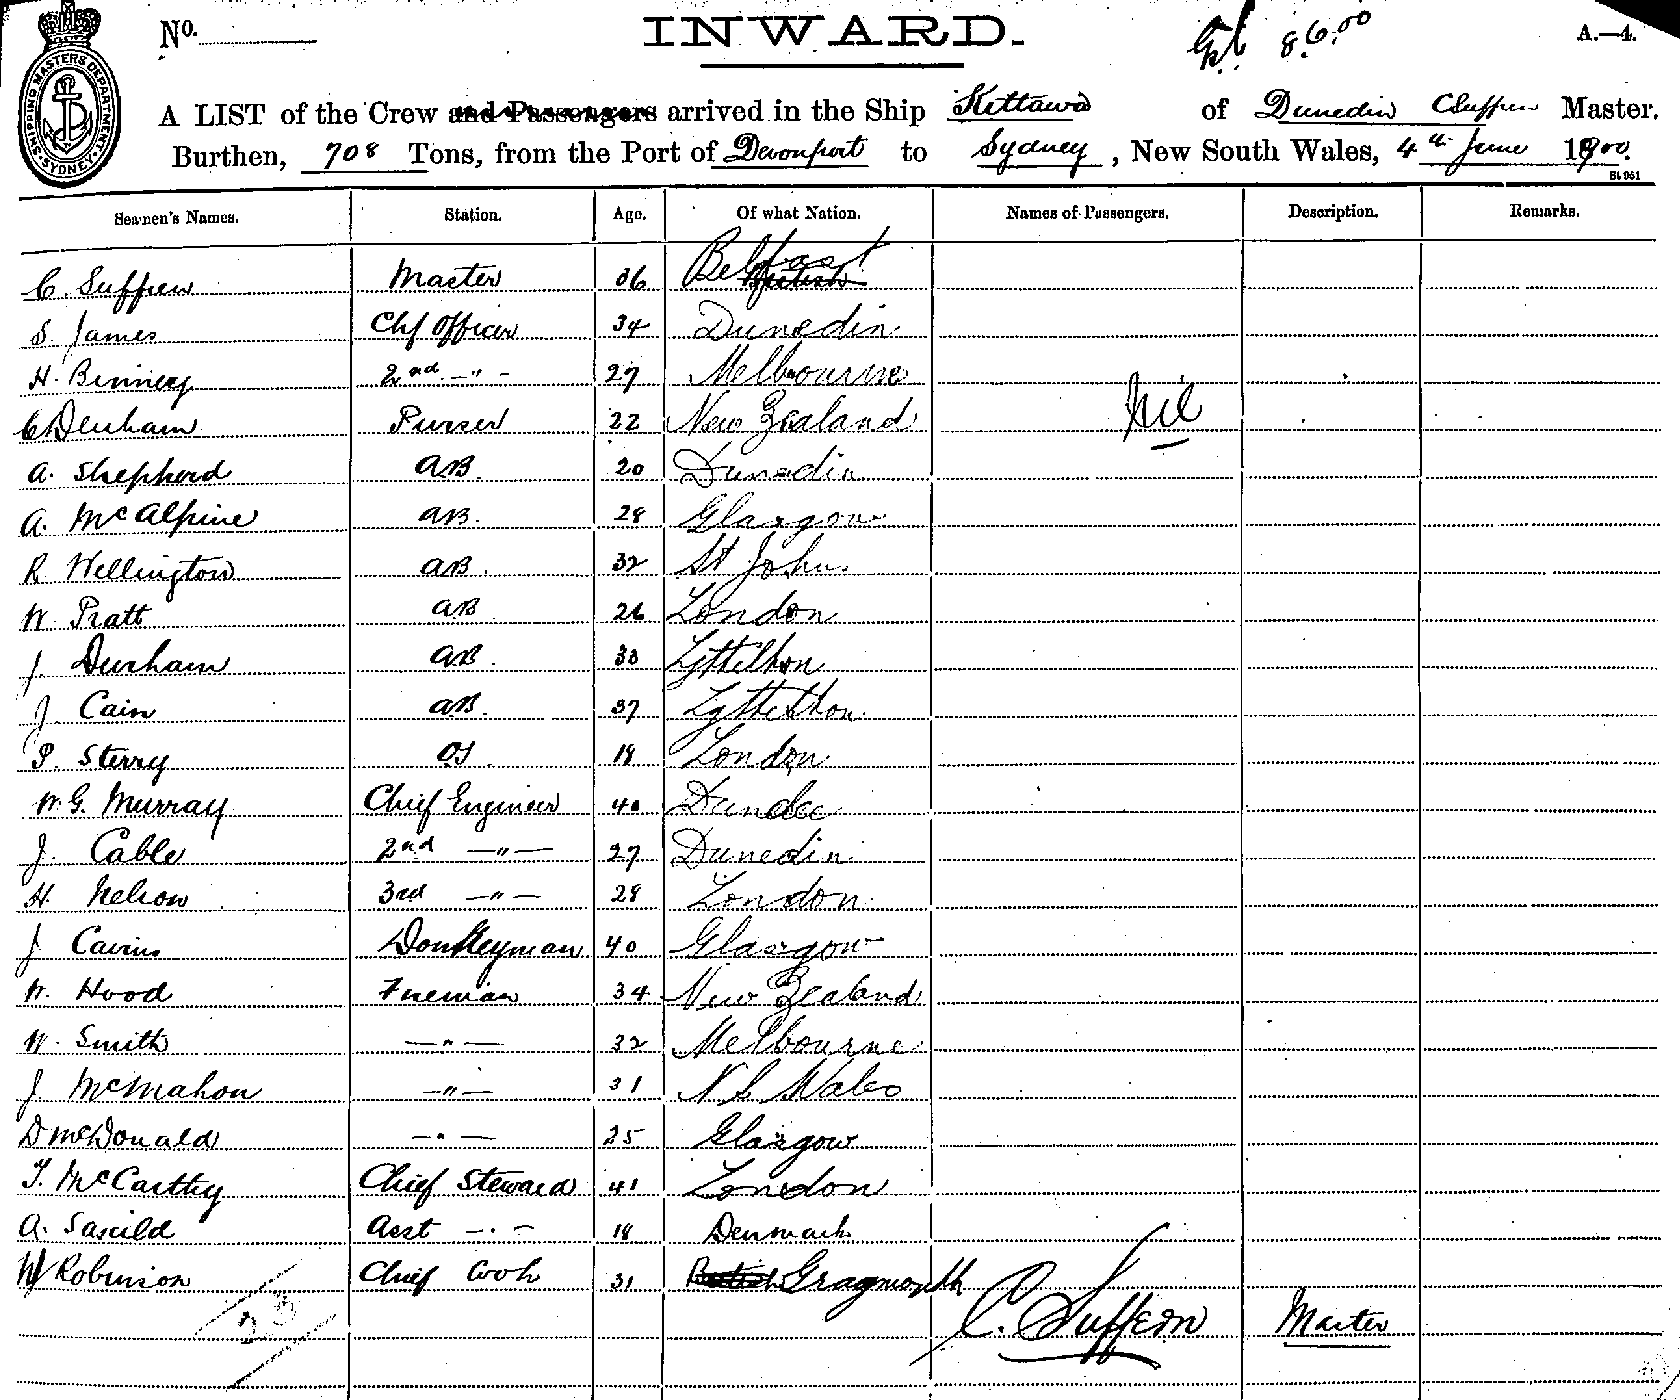 No.
INWARD.
8.6.00
A.—4.
SHIPPING MASTERS DEPARTMENT. SYDNEY.
A LIST of the Crew and Passengers arrived in the Ship Kittawa of Dunedin C Suffern Master.
Burthen, 708 Tons, from the Port of Devonport to Sydney, New South Wales, 4th June 1900.
Seamen's Names. Station. Age. Of what Nation. Names of Passengers. Description. Remarks.
C. Suffern Master 36 Belfast British
S. James Chf Officer 34 Dunedin
H. Binney 2nd —"— 27 Melbourne
C Denham Purser 22 New Zealand Nil
A. Shepherd AB. 20 Dunedin
A. McAlpine AB. 28 Glasgow
R Wellington AB. 32 St Johns
W Pratt AB 26 London
J. Durham AB. 33 Lyttelton
J. Cain AB. 37 Lyttelton
P. Sterry OS. 18 London
W.G. Murray Chief Engineer 40 Dundee
J. Cable 2nd —"— 27 Dunedin
H. Nelson 3rd —"— 28 London
J Cairns Donkeyman 40 Glasgow
W. Hood Fireman 34 New Zealand
W. Smith —"— 32 Melbourne
J McMahon —"— 31 N S Wales
D McDonald —"— 25 Glasgow
T. McCarthy Chief Steward 41 London
A. Saxild Asst —"— 18 Denmark
W Robinson Chief Cook 31 British Graymouth
C. Suffern Master